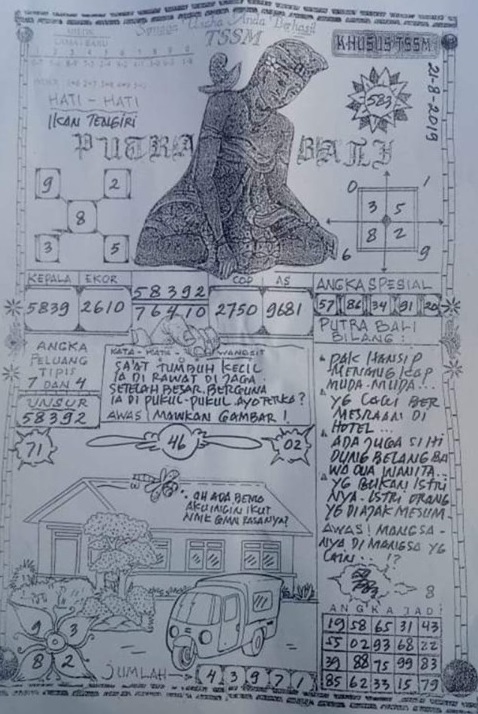 Semoga Usaha Anda Berhasil
TSSM
KHUSUS TSSM
21-8-2019
583
HATI - HATI
IKAN TENGIRI
PUTRA BALI
9 2
8
3 5
0 1
3 5
8 2
6 9
KEPALA EKOR
5839 2610
58392
76410
COP AS
2750 9681
ANGKA SPESIAL
57 86 34 91 20
ANGKA
PELUANG
TIPIS
7 DAN 4
UNSUR
58392
KATA - KATA WANGSIT
SA'AT TUMBUH KECIL
IA DI RAWAT DI JAGA
SETELAH BESAR BERGUNA
IA DI PUKUL-PUKUL AYO TERKA?
AWAS MAINKAN GAMBAR!
PUTRA BALI
BILANG:
PAK HANSIP
MENANGKAP
MUDA-MUDA...
YG LAGI BER
MESRAAN DI
HOTEL...
ADA JUGA SI HI
DUNG BELANG BA
WA DUA WANITA..
YG BUKAN ISTRI
NYA. ISTRI ORANG
YG DI AJAK MESUM
AWAS! MANGSA-
NYA DI MANGSA YG
LAIN..!?
71
46
02
OH ADA BEMO
AKU INGIN IKUT
NAIK RASANYA?
8
9 3
8 2
JUMLAH 4 3 9 7 1
ANGKA JADI
19 58 65 31 43
55 02 93 68 22
39 88 75 99 83
85 62 33 15 79